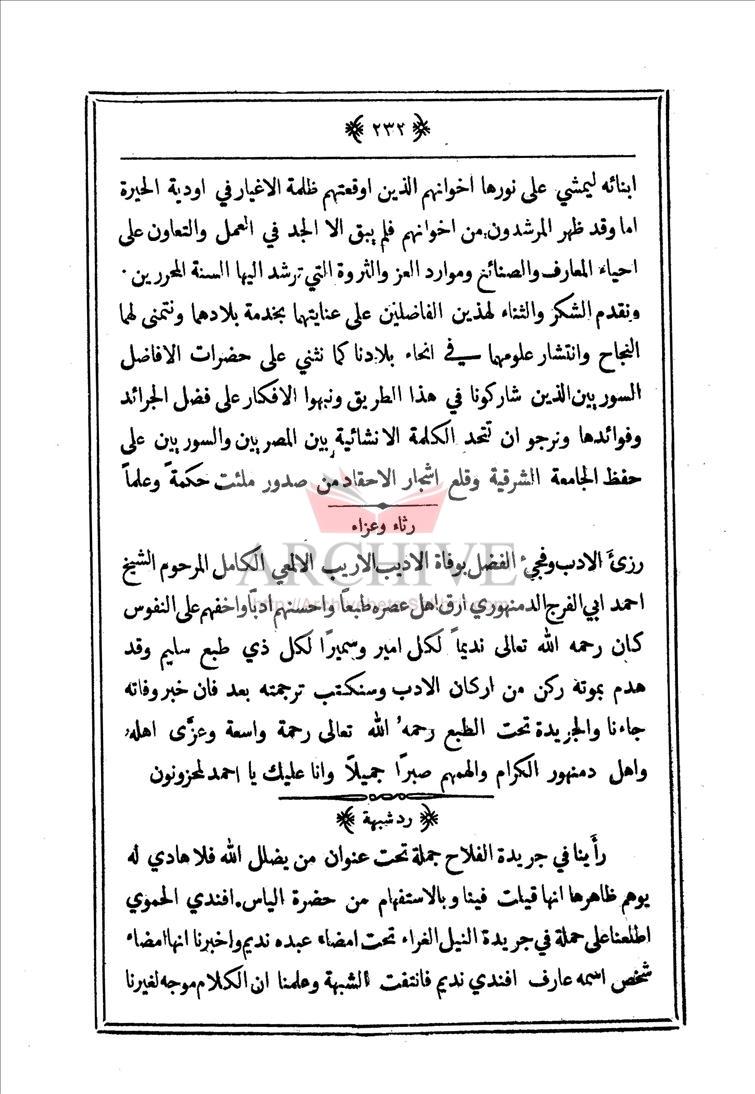 ﴿ ٢٣٢ ﴾
ابنائه ليمشي على نورها اخوانهم الذين اوقعتهم ظلمة الاغيار في اودية الحيرة
اما وقد ظهر المرشدون من اخوانهم فلم يبق الا الجد في العمل والتعاون على
احياء المعارف والصنائع وموارد العز والثروة التي ترشد اليها السنة المحررين ٠
ونقدم الشكر والثناء لهذين الفاضلين على عنايتهما بخدمة بلادهما ونتمنى لهما
النجاح وانتشار علومهما في انحاء بلادنا كما نثني على حضرات الافاضل
السوريين الذين شاركونا في هذا الطريق ونبهوا الافكار على فضل الجرائد
وفوائدها ونرجو ان تتحد الكلمة الانشائية بين المصريين والسوريين على
حفظ الجامعة الشرقية وقلع اشجار الاحقاد من صدور ملئت حكمةً وعلماً
رثاء وعزاء
رزئ الادب وفجئ الفضل بوفاة الاديب الاريب الالمعي الكامل المرحوم الشيخ
احمد ابي الفرج الدمنهوري ارق اهل عصره طبعاً واحسنهم ادباً واخفهم على النفوس
كان رحمه الله تعالى نديماً لكل امير وسميرًا لكل ذي طبع سليم وقد
هدم بموته ركن من اركان الادب وسنكتب ترجمته بعد فان خبر وفاته
جاءنا والجريدة تحت الطبع رحمه الله تعالى رحمة واسعة وعزَّى اهله
واهل دمنهور الكرام والهمهم صبرًا جميلًا وانا عليك يا احمد لمحزونون
﴿ رد شبهة ﴾
رأينا في جريدة الفلاح جملة تحت عنوان من يضلل الله فلا هادي له
يوهم ظاهرها انها قيلت فينا وبالاستفهام من حضرة الياس افندي الحموي
اطلعنا على حملة في جريدة النيل الغراء تحت امضاء عبده نديم واخبرنا انها امضاء
شخص اسمه عارف افندي نديم فانتفت الشبهة وعلمنا ان الكلام موجه لغيرنا
ARCHIVE